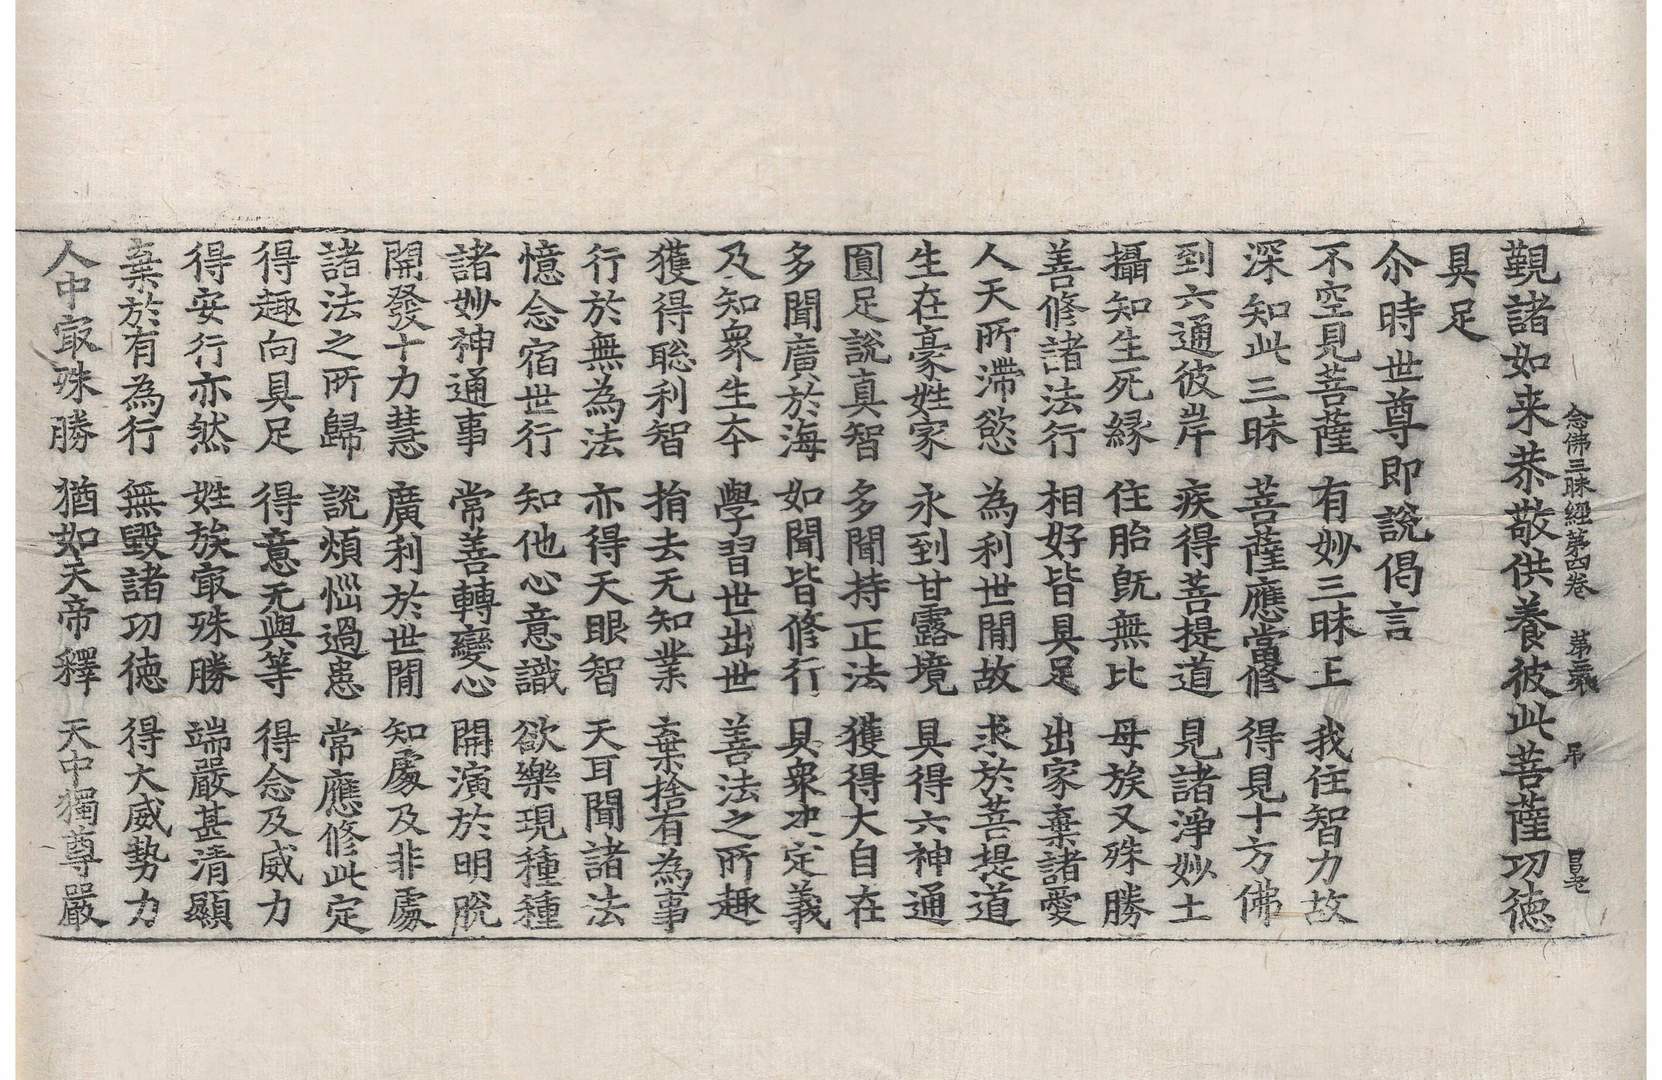 念佛三昧經第四卷 第 張 吊 昌老
覲諸如来恭敬供養彼此菩薩功德
具足
尒時世尊即說偈言
不空見菩薩 有妙三昧王 我住智力故
深知此三昧 菩薩應當修 得見十方佛
到六通彼岸 疾得菩提道 見諸淨妙土
攝知生死縁 住胎旣無比 母族又殊勝
善修諸法行 相好皆具足 出家棄諸愛
人天所滯慾 為利世閒故 求於菩提道
生在豪姓家 永到甘露境 具得六神通
圎足說真智 多聞持正法 獲得大自在
多聞廣於海 如聞皆修行 具衆决定義
及知衆生夲 學習世出世 善法之所趣
獲得聡利智 捐去无知業 棄捨有為事
行於無為法 亦得天眼智 天耳聞諸法
憶念宿世行 知他心意識 欲樂現種種
諸妙神通事 常善轉變心 開演於明脫
開發十力慧 廣利於世閒 知處及非處
諸法之所歸 說煩惱過患 常應修此定
得趣向具足 得意无與等 得念及威力
得安行亦然 姓族㝡殊勝 端嚴甚清顯
棄於有為行 無毀諸功德 得大威勢力
人中㝡殊勝 猶如天帝釋 天中獨尊嚴